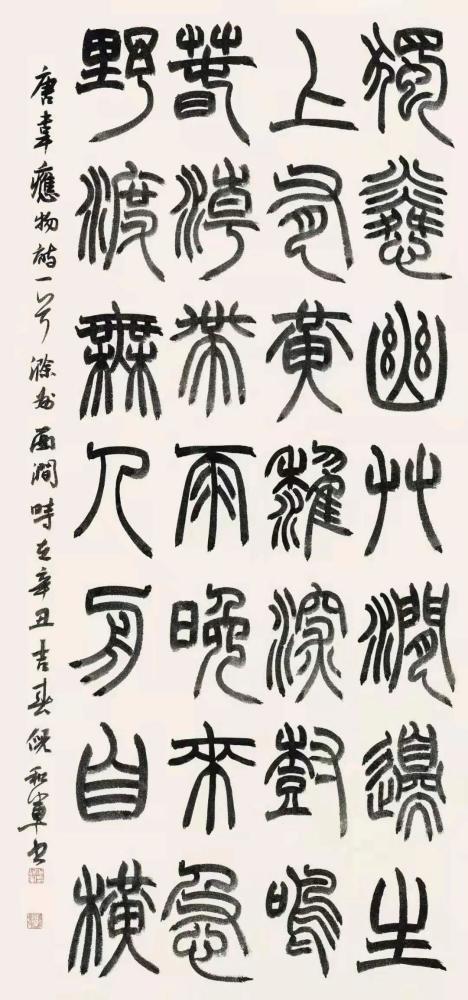 獨憐幽草澗邊生
上有黃鸝深樹鳴
春潮帶雨晚來急
野渡無人舟自橫
唐韋應物詩一首滁州西澗時在辛丑吉春倪和軍書